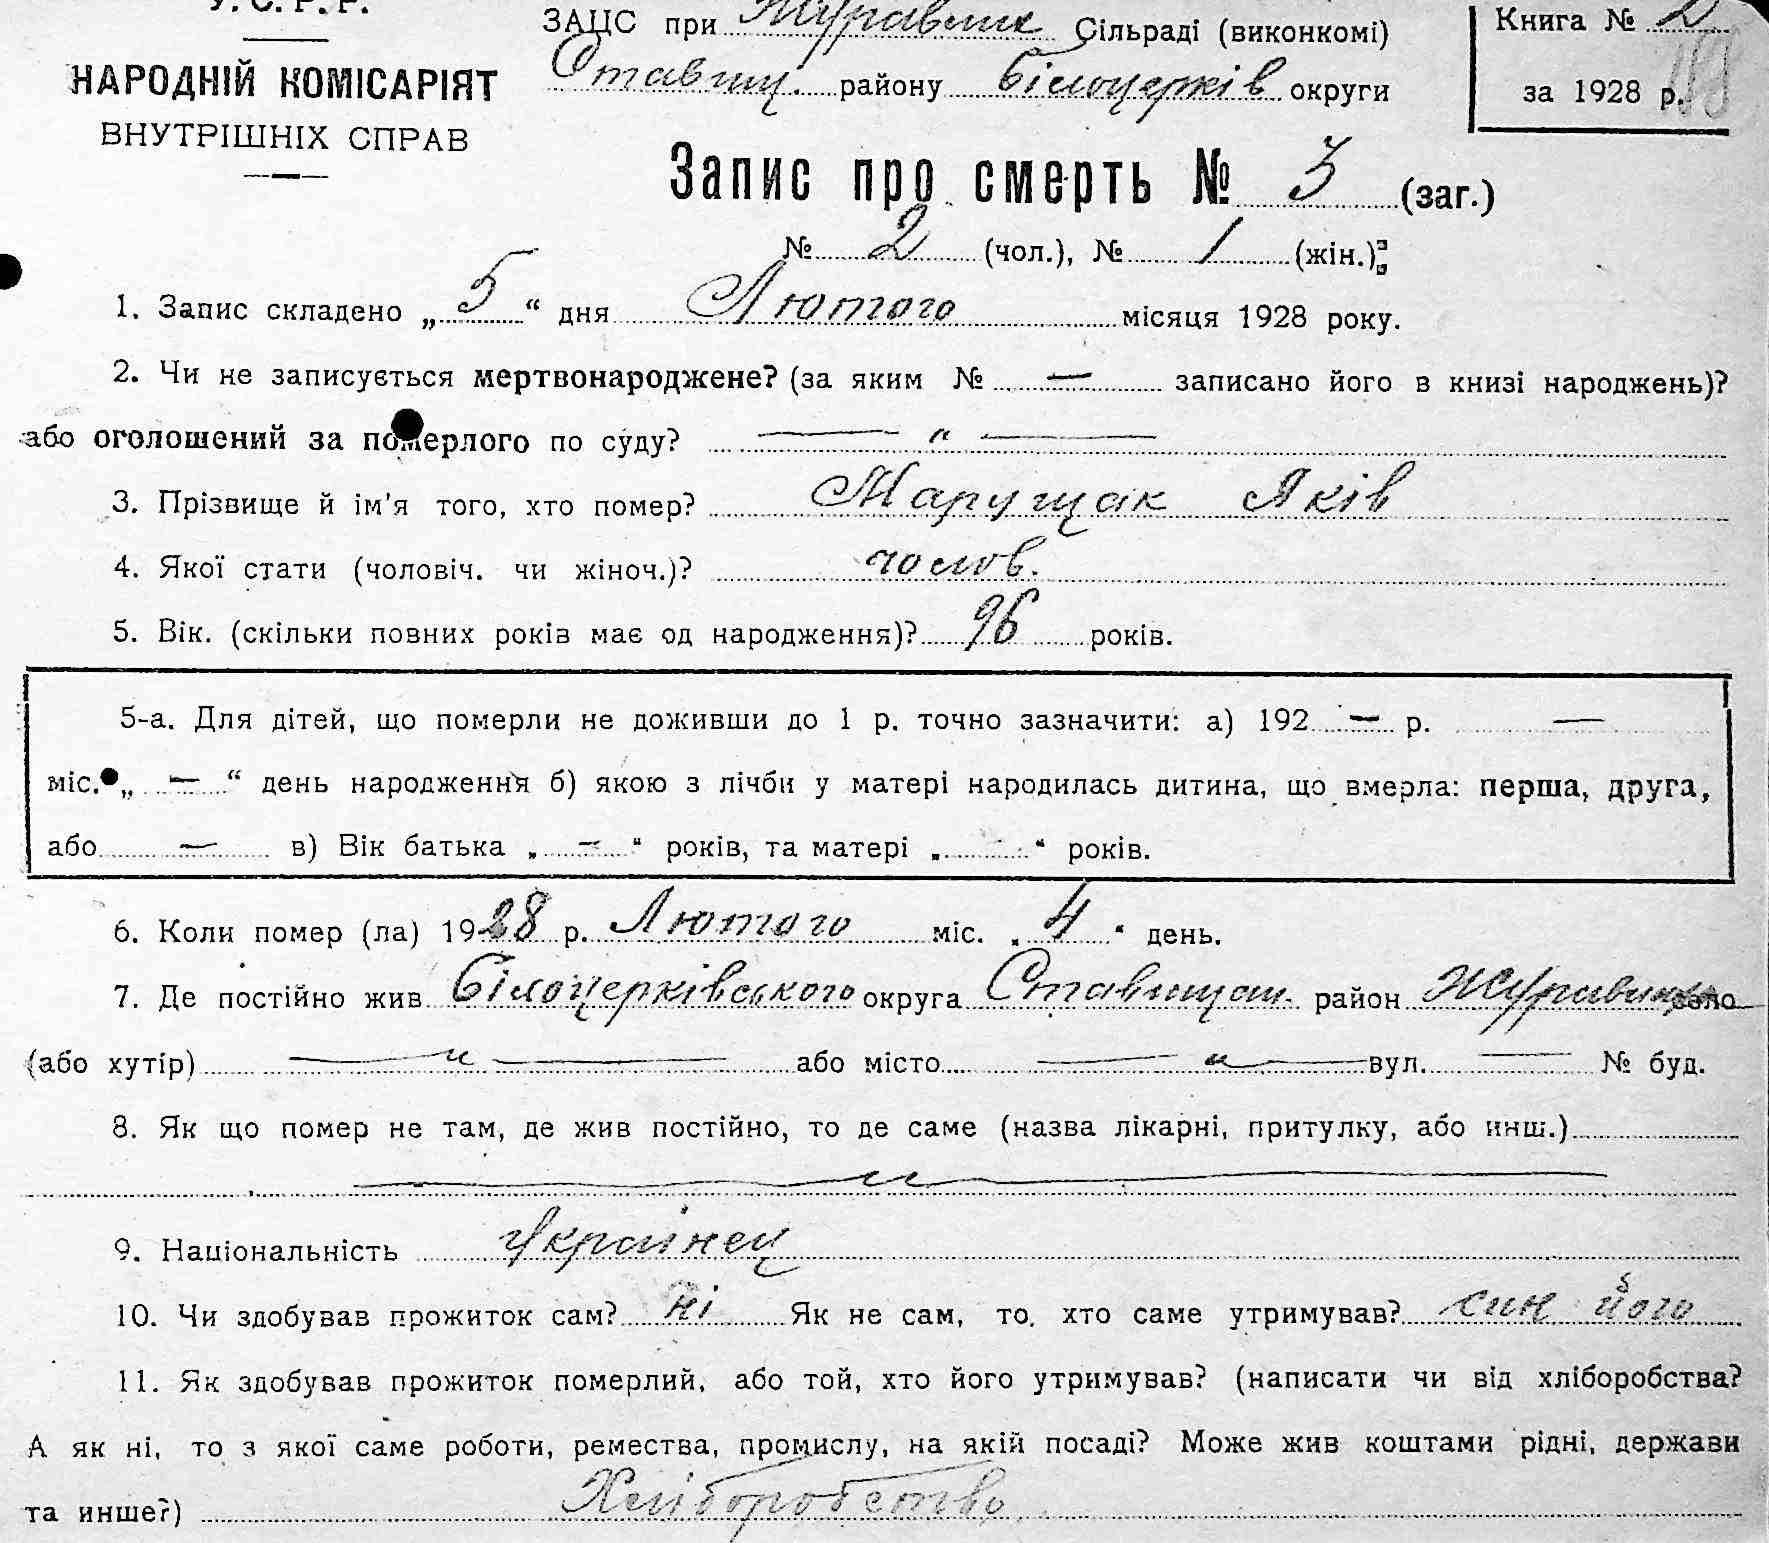 У. С. Р. Р.
НАРОДНІЙ КОМІСАРІЯТ
ВНУТРІШНІХ СПРАВ
ЗАЦС при Журавлих Сільраді (виконкомі)
Ставищ. району Білоцерків округи
Книга № 2
за 1928 р.
Запис про смерть № 3 (заг.)
№ 2 (чол.), № 1 (жін.)
1. Запис складено „ 5 “ дня Лютого місяця 1928 року.
2. Чи не записується мертвонароджене? (за яким № — записано його в книзі народжень)?
або оголошений за померлого по суду? — „ —
3. Прізвище й ім'я того, хто помер? Марущак Яків
4. Якої стати (чоловіч. чи жіноч.)? чолов.
5. Вік. (скільки повних років має од народження)? 96 років.
5-а. Для дітей, що померли не доживши до 1 р. точно зазначити: а) 192 — р. —
міс. „ — “ день народження б) якою з лічби у матері народилась дитина, що вмерла: перша, друга,
або — в) Вік батька „ — “ років, та матері „ - “ років.
6. Коли помер (ла) 1928 р. Лютого міс. „ 4 “ день.
7. Де постійно жив Білоцерківського округа Ставищан. район село
(або хутір) — „ — або місто — „ — вул. — № буд.
8. Як що помер не там, де жив постійно, то де саме (назва лікарні, притулку, або инш.)
— „ —
9. Національність Українец
10. Чи здобував прожиток сам? ні Як не сам, то, хто саме утримував? син його
11. Як здобував прожиток померлий, або той, хто його утримував? (написати чи від хліборобства?
А як ні, то з якої саме роботи, ремества, промислу, на якій посаді? Може жив коштами рідні, держави
та инше?) Хліборобство